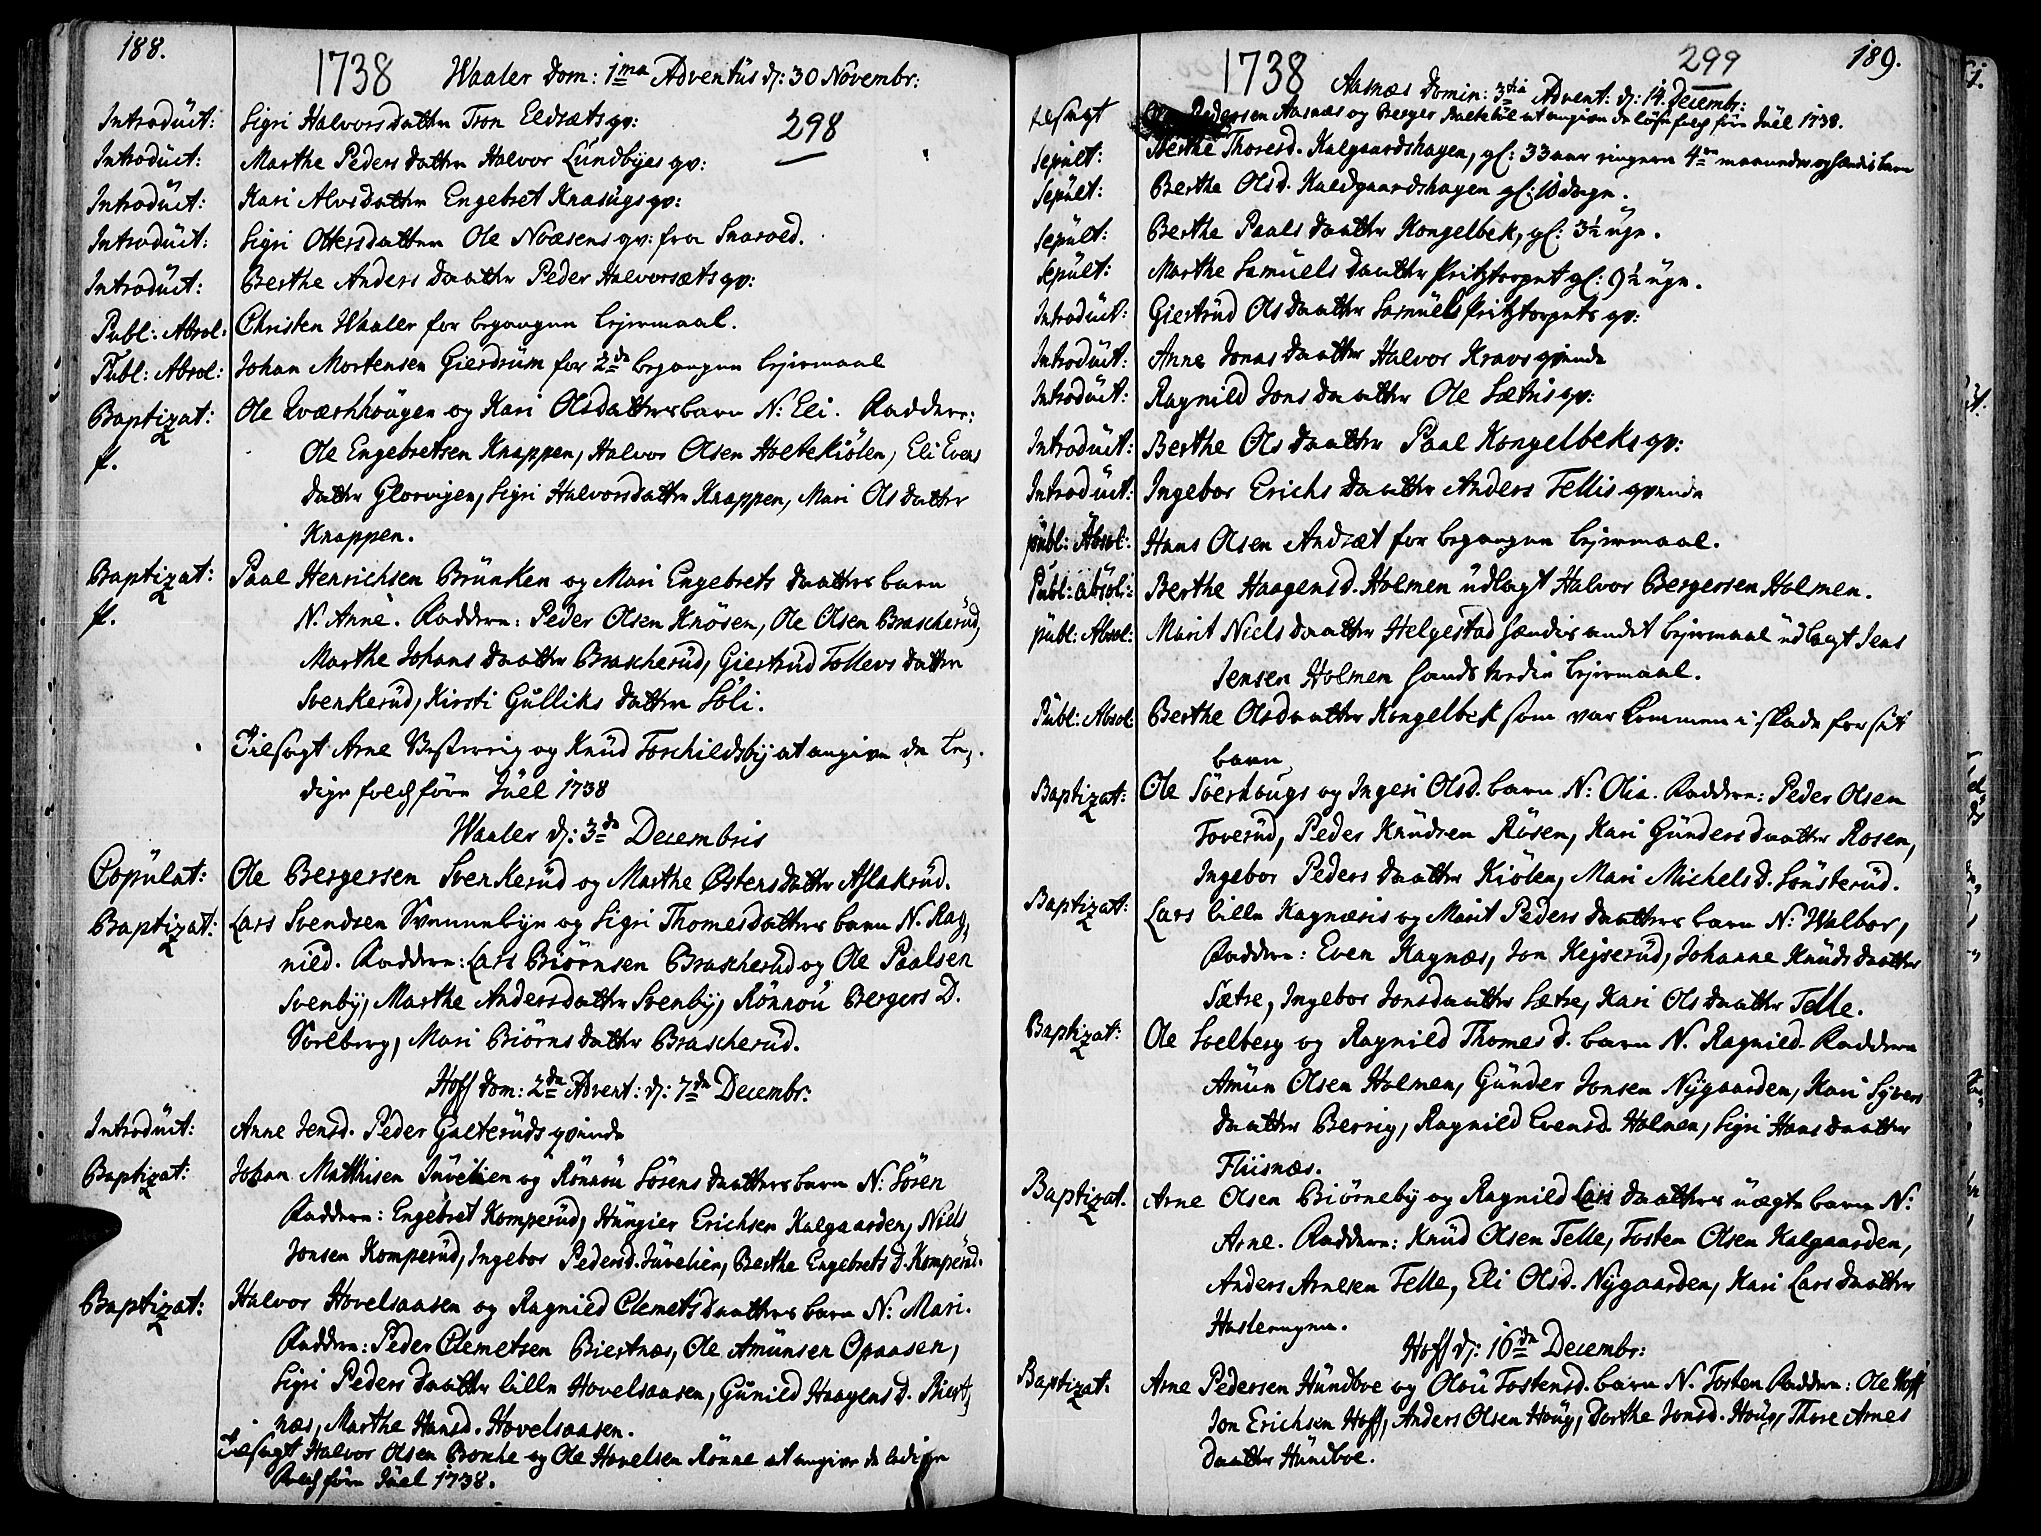 188.
1738 Waaler Dom: 1ma Adventüs d: 30 Novembr:
298
Introdüct: Sigri Halvorsdatter Tron Eldsæts qv:
Introdüct: Marthe Pedersdatter Halvor Lündbyes qv:
Introdüct: Kari Alvsdatter Engebret Knasügs qv:
Introdüct: Sigri Ottersdatter Ole Noæsens qv: fra Snaroed.
Introdüct: Berthe Andersdaatter Peder Halvorsæts qv:
Publ: Absol: Christen Waaler for begangen lejermaal.
Publ: Absol: Johan Mortensen Gierdrüm for 2de begangen lejermaal
Baptizat: Ole Qværhhougen og Kari Olsdatters barn N: Eli. Faddere:
f. Ole Engebretsen Knappen, Halvor Olsen Holtekiölen, Eli Evens
datter Glorvigen, Sigri Halvorsdatter Knappen, Mari Olsdatter
Knappen.
Baptizat: Paal Henrichsen Brünken og Mari Engebretsdaatters barn
f. N. Anne. Faddere: Peder Olsen Knösen, Ole Olsen Brascherüd,
Marthe Johansdaatter Brascherüd, Giertrüd Tollevsdatter
Svenkerüd, Kirsti Gülliksdatter Söli.
Tilsagt Arne Vestervig og Knüd Torchildsbÿ at angive de le,,
dige folch före Jüel 1738
Waaler d: 3de Decembris
Copülat: Ole Bergersen Svenkerüd og Marthe Østensdatter Aslakrüd.
Baptizat: Lars Svendsen Svennebye og Sigri Thomesdatters barn N. Rag,,
nild. Faddere: Lars Biörnsen Brascherüd og Ole Paalsen
Svenbÿ, Marthe Andersdatter Svenbÿ, Rönnoü Bergers D.
Sorlberg, Mari Biörnsdatter Brascherüd.
Hoff Dom: 2da Advent: d: 7de Decembr:
Introdüct: Anne Jensd. Peder Galterüds qvinde
Baptizat: Johan Matthisen Jüvelien og Rönnou Sörensdaatters barn N: Sören
Faddere: Engebret Komperüd, Hüngier Erichsen Kalgaarden, Niels
Jonsen Komperüd, Ingebor Pedersd. Jüvelien, Berthe Engebrets D. Komperüd.
Baptizat: Halvor Hovelsaasen og Ragnild Clemetsdaatters barn N: Mari.
Faddere: Peder Clemetsen Biertnæs, Ole Amünsen Opaasen,
Sigri Pedersdaatter lille Hovelsaasen, Günild Haagens D. Biert,,
næs, Marthe Hansd. Hovelsaasen.
Tilsagt Halvor Olsen Bronke og Ole Hovelsen Rönne at angive de ledige
folch före Jüel 1738.
189.
299
1738 Aasnæs Domin: 3tia Advent: d: 14. Decembr:
tilsagt Pedersen Aasnæs og Berger at angive de löse folch före Jüel 1738.
Sepült: Berthe Thoresd. Kalgaardshagen, gl: 33 aar ringere 4re maaneder og hendis barn
Sepült: Berthe Olsd. Kaldgaardshagen gl: 10 dage.
Sepült: Berthe Paalsdaatter Kongelbek, gl: 3½ uge.
Sepült: Marthe Samüelsdaatter Pritztorpet gl: 9½ uge.
Introdüct: Giertrüd Olsdaatter Samüels Pritztorpets qv:
Introdüct: Anne Jonasdaatter Halvor Kravs qvinde
Introdüct: Ragnild Jonsdaatter Ole Sætris qv:
Introdüct: Berthe Olsdaatter Paal Kongelbeks qv:
Introdüct: Ingebor Erichsdaatter Anders Tellis qvinde
publ: Absol: Hans Olsen Andsæt for begangen lejermaal.
Publ: absol: Berthe Haagensd. Holmen üdlagt Halvor Bergersen Holmen.
publ: Absol: Marit Nielsdaatter Helgestad hendis andet lejermaal üdlagt Jens
Jensen Holmen hands tredie lejermaal.
Publ: Absol Berthe Olsdaatter Kongelbek som var kommen i skade for sit
barn
Baptizat: Ole Söerhougs og Ingeri Olsd. barn N: Olia. Faddere: Peder Olsen
Toverüd, Peder Knüdsen Rösen, Kari Gündersdaatter Rosen,
Ingebor Pedersdaatter Kiölen, Mari Michelsd. Sönsterüd.
Baptizat: Lars lille Kagnæsis og Marit Pedersdaatters barn N: Walbor,
Faddere: Even Kagnæs, Jon Kejserüd, Johanne Knüdsdaatter
Sætre, Ingebor Jonsdaatter Sætre, Kari Olsdaatter Telle.
Baptizat: Ole Soelberg og Ragnild Thomes d. barn N. Ragnild. Faddere
Amün Olsen Holmen, Günder Jonsen Nÿgaarden, Kari Syvers
daatter Berrig, Ragnild Evensd. Holmen, Sigri Hansdaatter
Fliisnæs.
Baptizat. Arne Olsen Biörnebÿ og Ragnild Larsdaatters üægte barn N:
Arne. Faddere: Knüd Olsen Telle, Tosten Olsen Kalgaarden,
Anders Arnesen Telle, Eli Olsd. Nÿgaarden, Kari Larsdaatter
Haslerengen.
Hoff d: 16de Decembr:
Baptizat. Arne Pedersen Hündboe og Oloü Tostensd. barn N. Tosten Faddere: Ole Hoff
Jon Erichsen Hoff, Anders Olsen Hoüg, Dorthe Jonsd. Hoüg, Thore Arnes
daatter Hündboe.